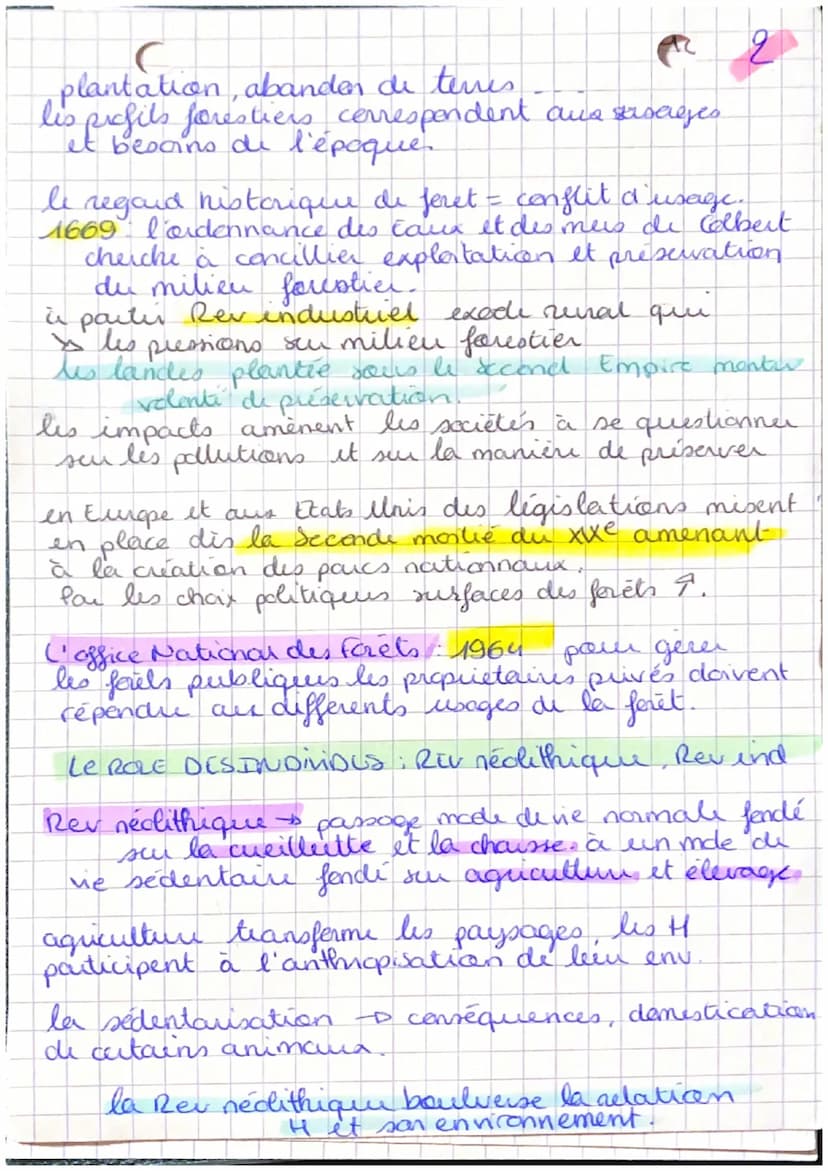 2
plantation, abandon de terres ...
les profils forestiers correspondent aux usages
et besoins de l'époque.
le regard historique de foret = conflit d'usage.
1669 : l'ordonnance des Eaux et des mers de Colbert
cherche à concillier exploitation et préservation
du milieu forestier.
à partir Rev industriel exode rural qui
↘ les pressions sur milieu forestier
les landes plantée sous le second Empire montre
volonté de préservation.
les impacts amènent les sociétés à se questionner
sur les pollutions et sur la manière de préserver
en Europe et aux Etats Unis des législations misent
en place dès la seconde moitié du XIXe amenant
à la création des parcs nationnaux.
Par les choix politiques surfaces des forêts ↗.
L'office National des Forêts : 1964 pour gérer
les forêts publiques les propriétaires privés doivent
répendre aux differents usages de la forêt.
Le ROLE DES INDIVIDUS : REV néolithique, Rev ind
Rev néolithique → passage mode de vie normale fondé
sur la cueillette et la chausse. à un mde de
vie sédentaire fondé sur agriculture et élevage.
agriculture transforme les paysages, les H
participent à l'anthropisation de leur env.
la sédentarisation → conséquences, domestication
de certains animaux.
la Rev néolithique boulverse la relation
H et son environnement.